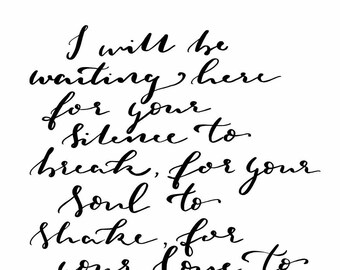 I will be
waiting here
for your
silence to
break, for your
soul to
shake, for
your love to